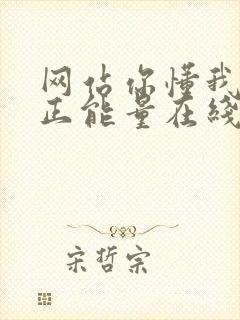 网佔你懂我
正能量在线
宋哲宗